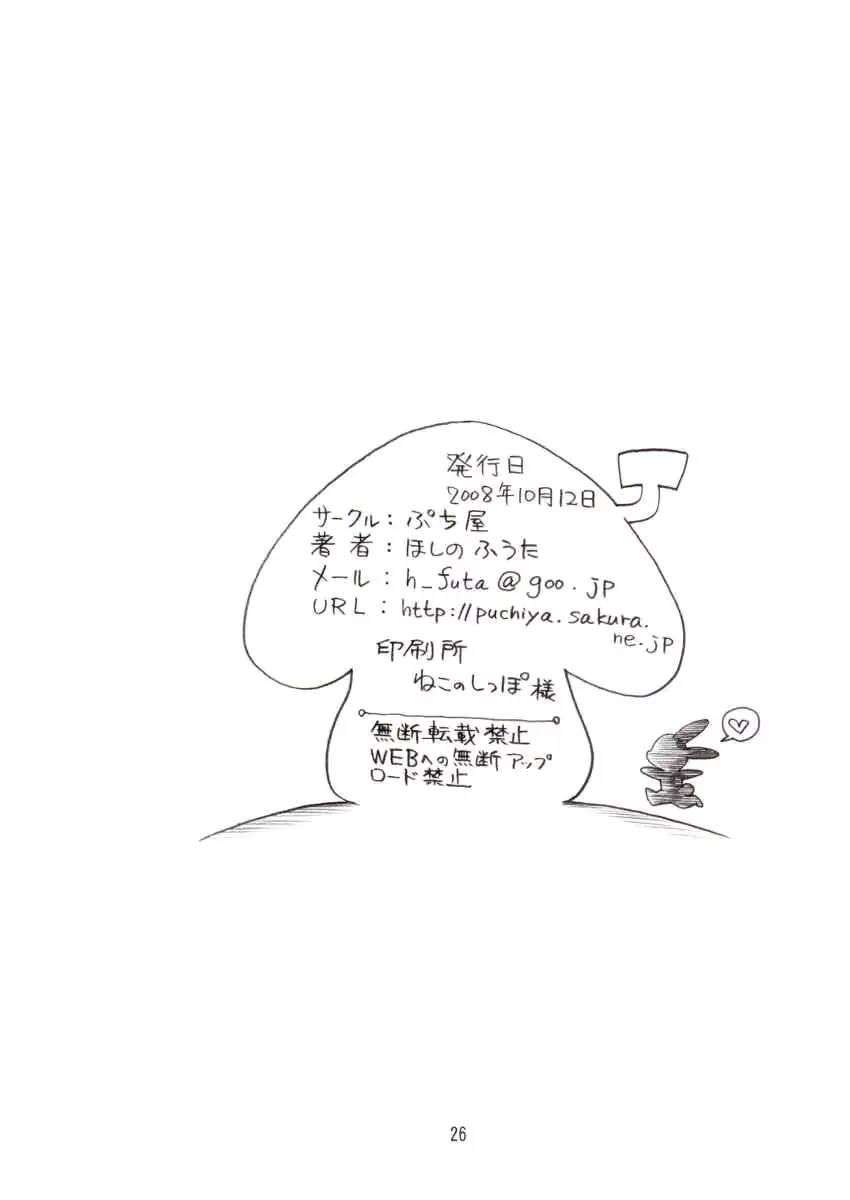 発行日
2008年10月12日
サークル：ぷち屋
著者：ほしのふうた
メール：h_futa@goo.jp
URL：http://puchiya.sakura.
ne.jp
印刷所
ねこのしっぽ様
無断転載禁止
WEBへの無断アップ
ロード禁止
26